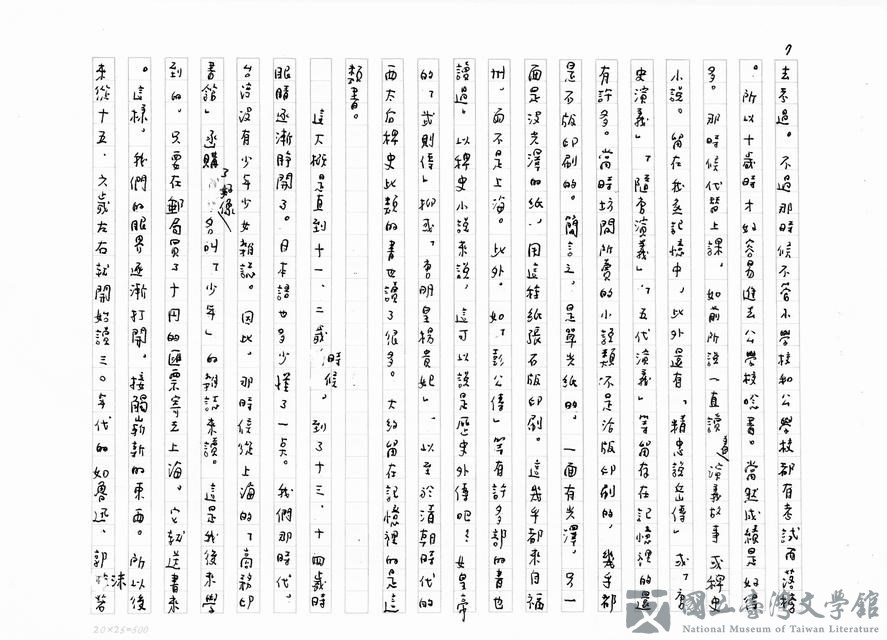 7
去不過。不過那時候不管小學校和公學校都有考試而落榜
。所以十歲時才好容易進去公學校唸書。當然成績是好得
多。那時候代替上課,如前所說一直讀多演義故事或稗史
小說。留在我記憶中,此外還有,「精忠說岳傳」或「
史演義」、「隨唐演義」、「五代演義」等留存在記憶裡的還
有許多。當時坊間所賣的小說類不是活版印刷的,幾乎都
是石版印刷的。簡言之,是單光紙的,一面有光澤,另一
面是沒光澤的紙,用這種紙張石版印刷。這幾乎都來自福
州,而不是上海。此外,如「彭公傳」等有許多部的書也
讀過,以稗史小說來說,這可以說是歷史外傳吧?女皇帝
的「武則傳」抑或「唐明皇楊貴妃」,以至於清朝時代的
西太后稗史此類的書也讀了很多。大約留在記憶裡的是這
類書。
這大概是直到十一、二歲時候,到了十三、十四歲時
眼睛逐漸睜開了。日本語也多少懂了一點。我們那時代,
台灣沒有少年少女雜誌。因此,那時候從上海的「商務印
書館」函購了好像名叫「少年」的雜誌來讀。這是我後來學
到的。只要在郵局買了十円的匯票寄去上海,它就送書來
。這樣,我們的眼界逐漸打開,接觸嶄新的東西。所以後
來從十五、六歲左右就開始讀三〇年代的如魯迅、郭沫若
20×25=500
國立臺灣文學館
National Museum of Taiwan Literature